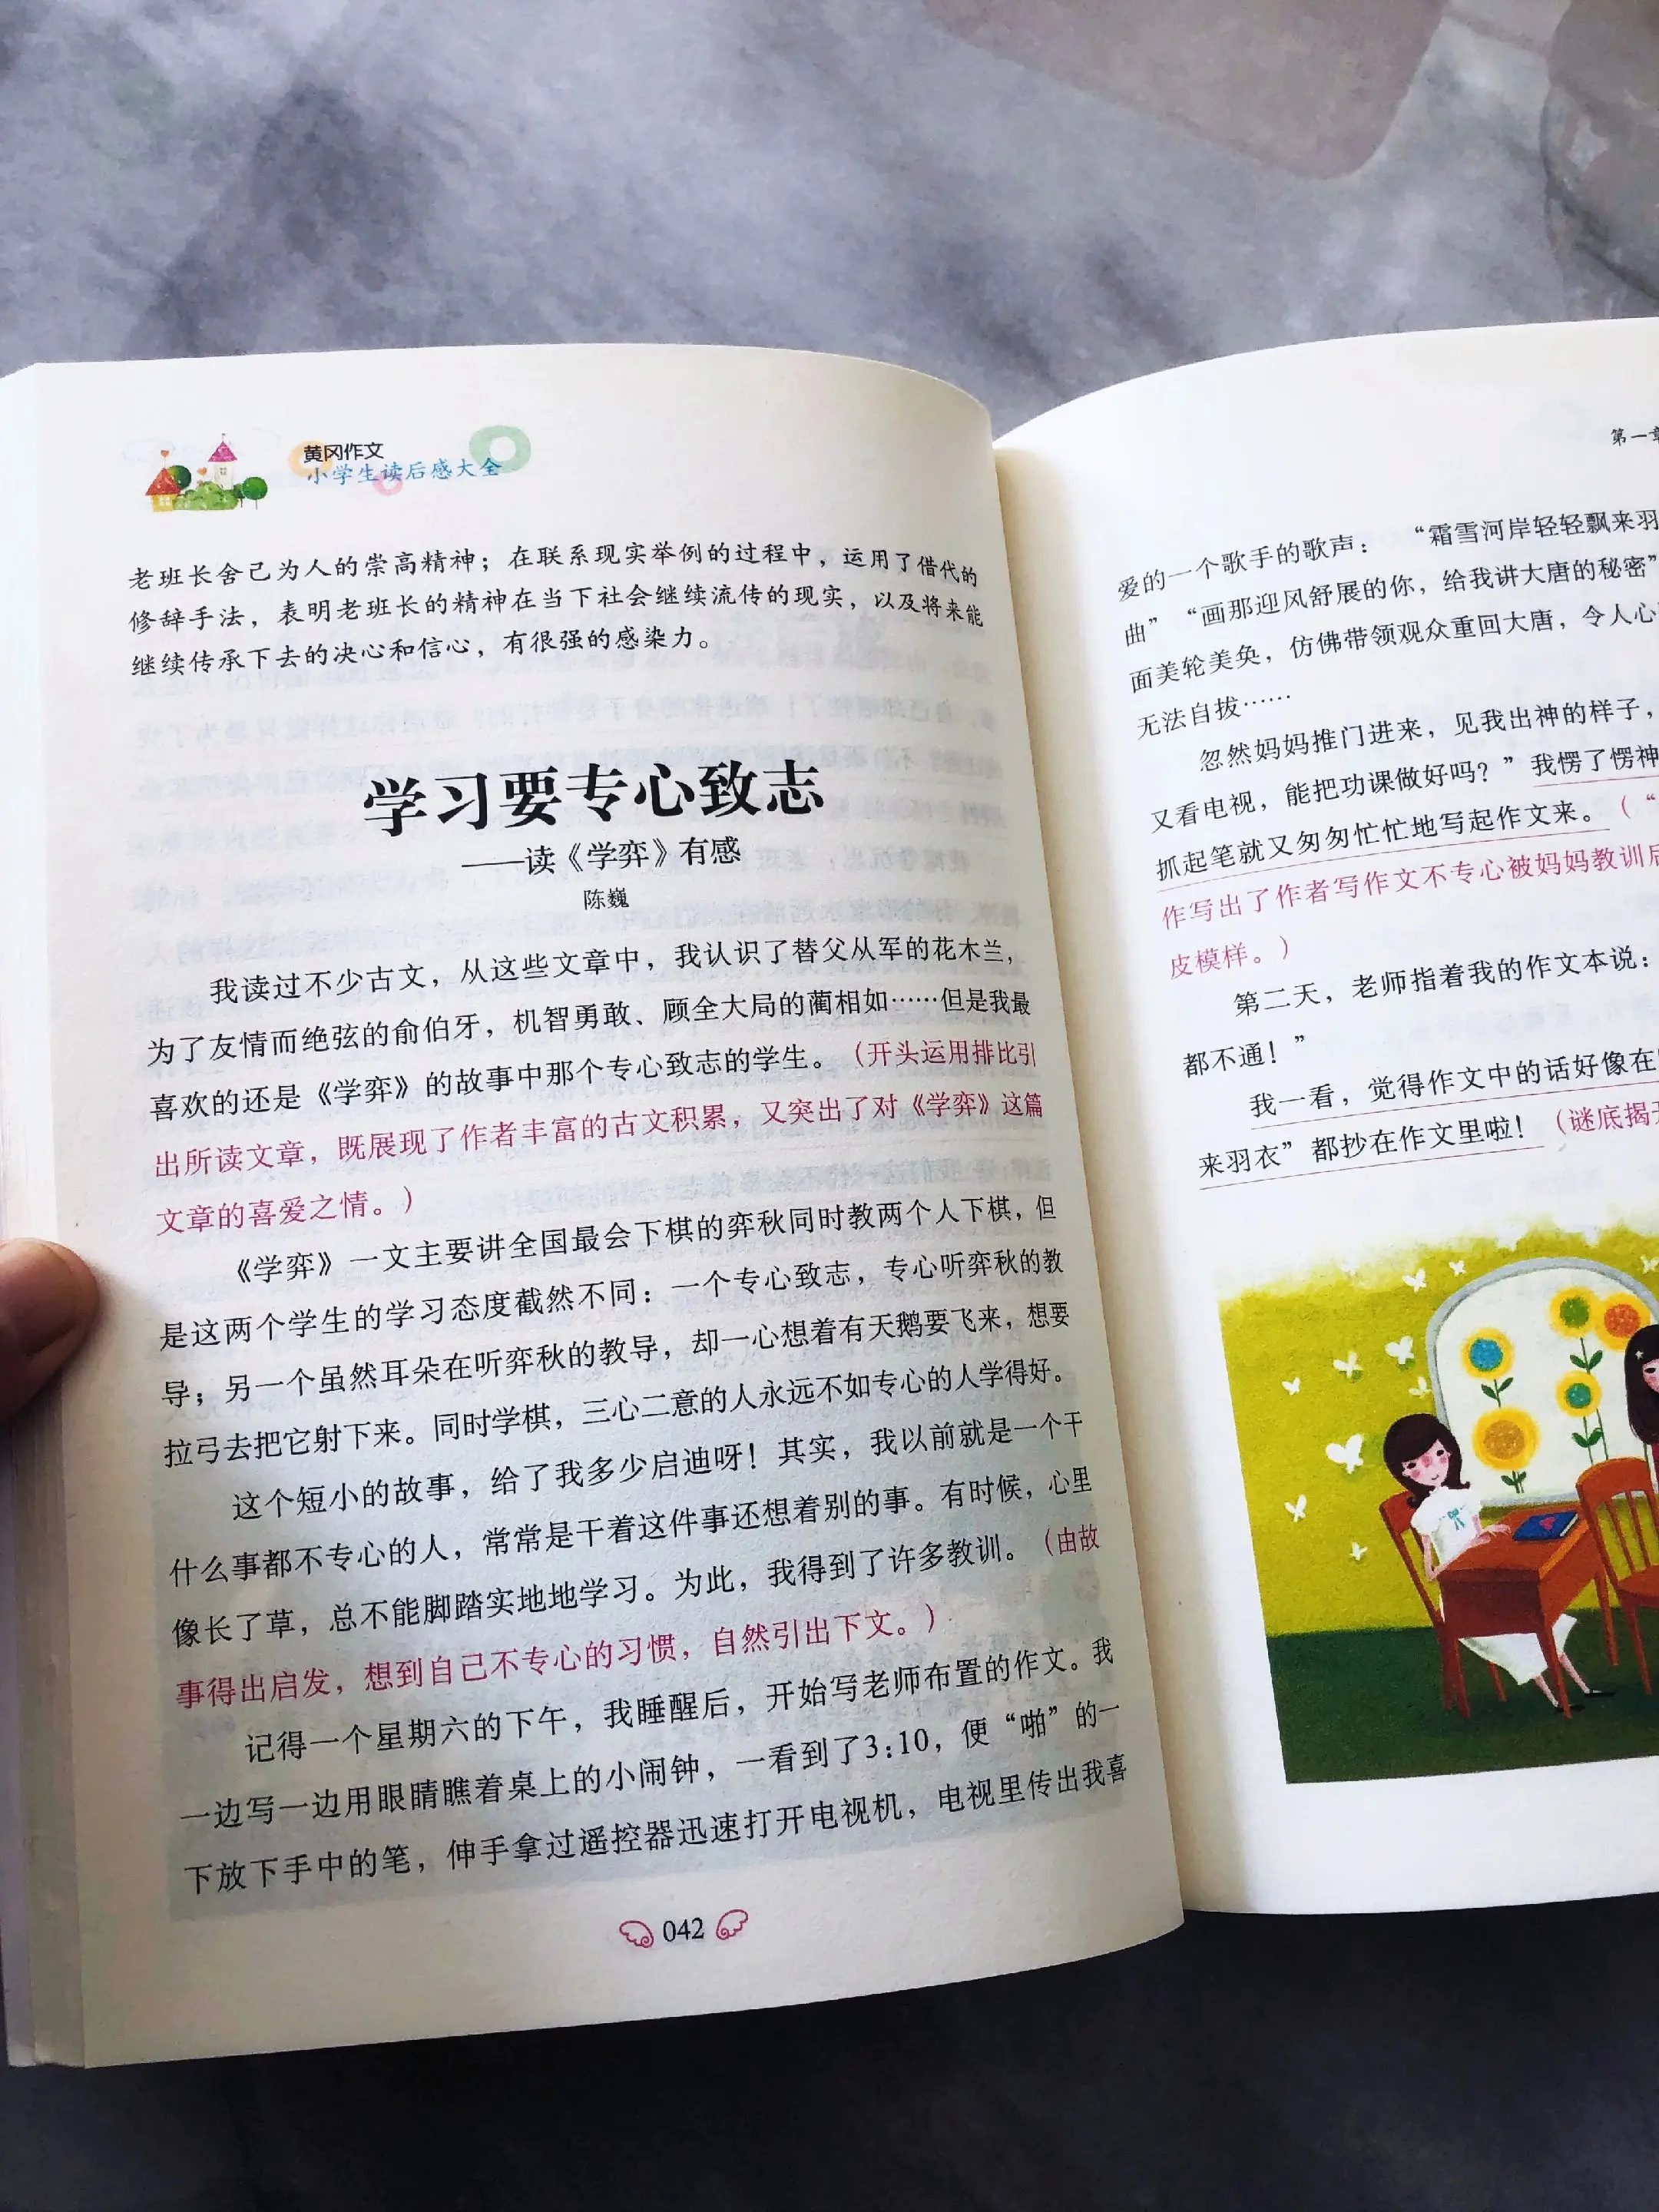 黄冈作文
小学生读后感大全
老班长舍己为人的崇高精神；在联系现实举例的过程中，运用了借代的
修辞手法，表明老班长的精神在当下社会继续流传的现实，以及将来能
继续传承下去的决心和信心，有很强的感染力。
学习要专心致志
——读《学弈》有感
陈巍
我读过不少古文，从这些文章中，我认识了替父从军的花木兰，
为了友情而绝弦的俞伯牙，机智勇敢、顾全大局的蔺相如……但是我最
喜欢的还是《学弈》的故事中那个专心致志的学生。（开头运用排比引
出所读文章，既展现了作者丰富的古文积累，又突出了对《学弈》这篇
文章的喜爱之情。）
《学弈》一文主要讲全国最会下棋的弈秋同时教两个人下棋，但
是这两个学生的学习态度截然不同：一个专心致志，专心听弈秋的教
导；另一个虽然耳朵在听弈秋的教导，却一心想着有天鹅要飞来，想要
拉弓去把它射下来。同时学棋，三心二意的人永远不如专心的人学得好。
这个短小的故事，给了我多少启迪呀！其实，我以前就是一个干
什么事都不专心的人，常常是干着这件事还想着别的事。有时候，心里
像长了草，总不能脚踏实地地学习。为此，我得到了许多教训。（由故
事得出启发，想到自己不专心的习惯，自然引出下文。）
记得一个星期六的下午，我睡醒后，开始写老师布置的作文。我
一边写一边用眼睛瞧着桌上的小闹钟，一看到了3:10，便“啪”的一
下放下手中的笔，伸手拿过遥控器迅速打开电视机，电视里传出我喜
042
第一章
爱的一个歌手的歌声：“霜雪河岸轻轻飘来羽
曲”“画那迎风舒展的你，给我讲大唐的秘密”
面美轮美奂，仿佛带领观众重回大唐，令人心
无法自拔……
忽然妈妈推门进来，见我出神的样子，
又看电视，能把功课做好吗？”我愣了愣神
抓起笔就又匆匆忙忙地写起作文来。（“
作写出了作者写作文不专心被妈妈教训后
皮模样。）
第二天，老师指着我的作文本说：
都不通！”
我一看，觉得作文中的话好像在
来羽衣”都抄在作文里啦！（谜底揭开